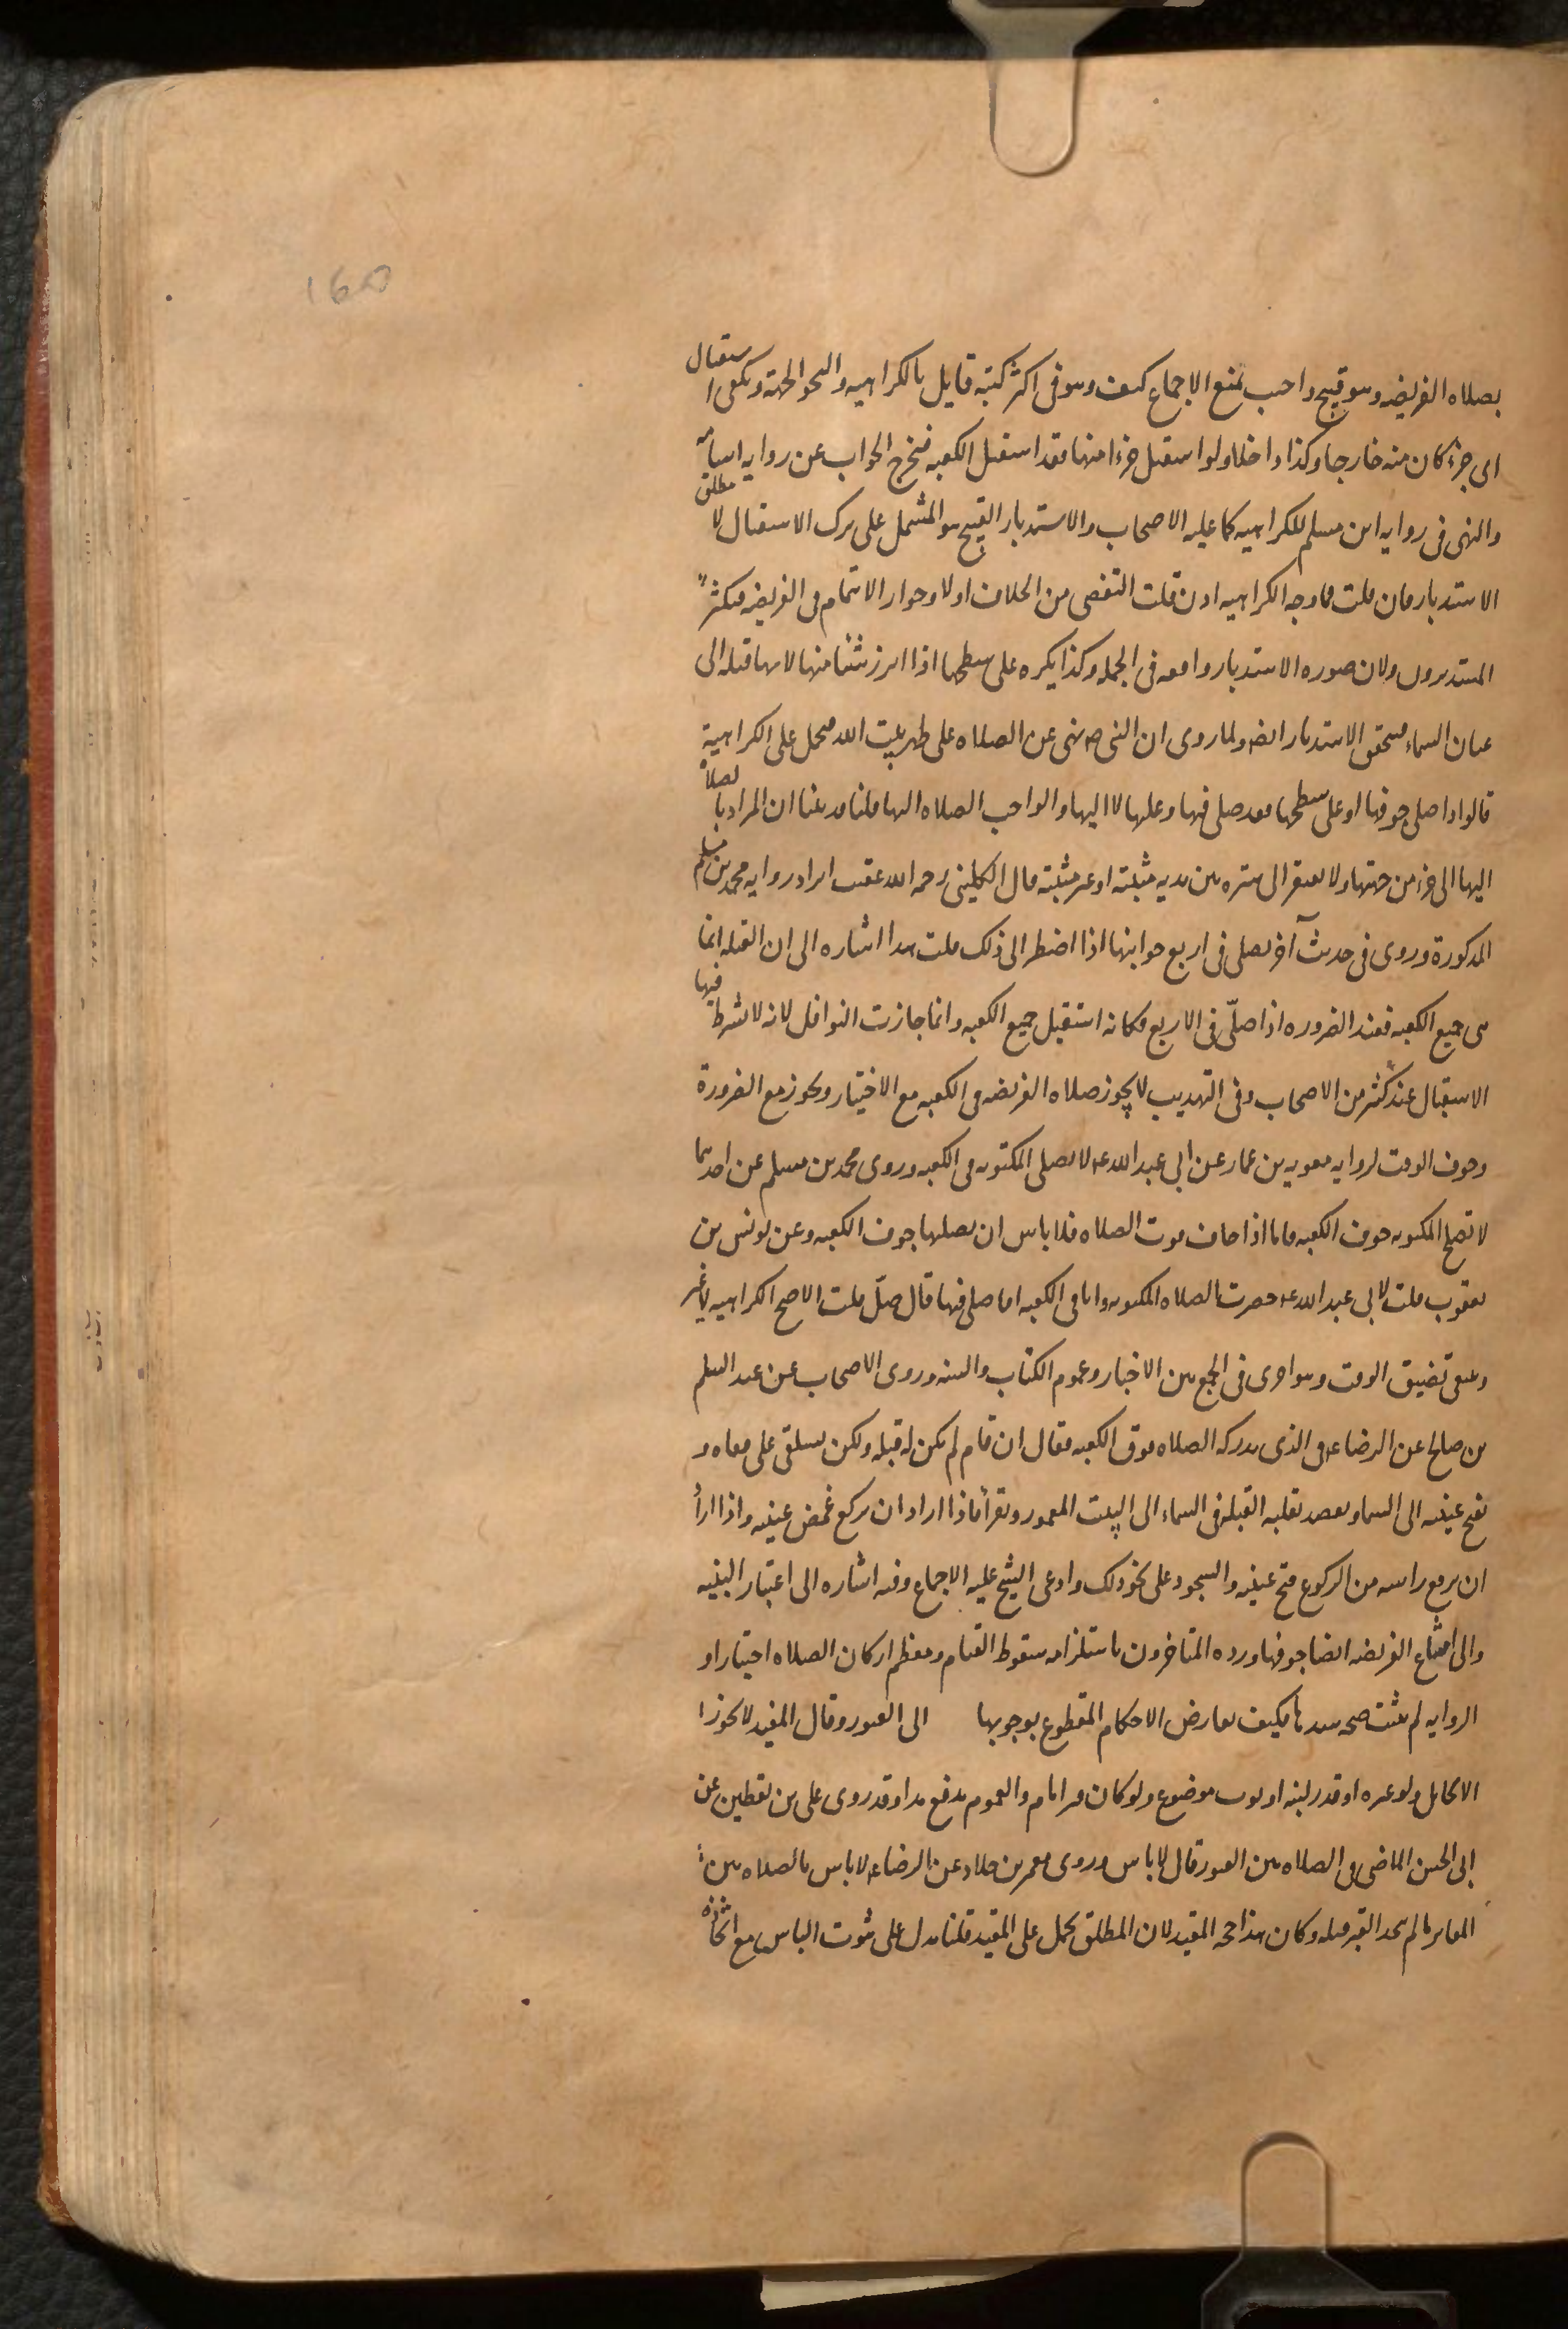 160
بصلاه الفريضه وهو قبيح واجيب بمنع الاجماع كيف وهو فى اكثر كتبه قايل بالكراهيه والنحو الجهة ويكفى استقبال
اى جزء كان منه خارجا وكذا داخلا ولو استقبل جزءا منها فقد استقبل الكعبه فخرج الجواب عن روايه اسامه
والنهى فى روايه ابن مسلم للكراهيه كما عليه الاصحاب والاستدبار القبيح هو المشتمل على ترك الاستقبال لا مطلق
الاستدبار فان قلت فما وجه الكراهيه اذن قلت التفصى من الخلاف اولا وجواز الائتمام فى الفريضه فيكثر
المستدبرون ولان صوره الاستدبار واقعه فى الجمله وكذا يكره على سطحها اذا ابرز شيئا منها لانها قبله الى
عنان السماء فيتحقق الاستدبار ايضا ولما روى ان النبى ص نهى عن الصلاه على ظهر بيت الله فيحمل على الكراهية
قالوا اذا صلى جوفها او على سطحها فقد صلى فيها وعليها لا اليها والواجب الصلاه اليها قلنا قد بينا ان المراد بالصلاة
اليها الى جزء من جهتها ولا يفتقر الى ستره بين يديه مثبتة او غير مثبتة قال الكلينى رحمه الله عقيب ايراد روايه محمد بن مسلم
المذكورة وروى فى حديث آخر يصلى فى اربع جوانبها اذا اضطر الى ذلك قلت هذا اشاره الى ان القبله انما
هى جميع الكعبه فعند الضروره اذا صلّى فى الاربع فكانه استقبل جميع الكعبه وانما جازت النوافل لانه لا يشترط فيها
الاستقبال عند كثير من الاصحاب وفى التهذيب لا يجوز صلاه الفريضه فى الكعبه مع الاختيار ويجوز مع الضرورة
وخوف الوقت لروايه معويه بن عمار عن ابى عبد الله ع لا يصلى المكتوبه فى الكعبه وروى محمد بن مسلم عن احدهما
لا تصلح المكتوبه جوف الكعبه فاما اذا خاف فوت الصلاه فلا باس ان يصليها جوف الكعبه وعن يونس بن
يعقوب قلت لابى عبد الله ع حضرت الصلاه المكتوبه وانا فى الكعبه افاصلى فيها قال صلّ قلت الاصح الكراهيه لا غير
ويبقى تضيق الوقت وهو احرى فى الجمع بين الاخبار وعموم الكتاب والسنه وروى الاصحاب عن عبد السلم
بن صالح عن الرضا ع فى الذى يدركه الصلاه فوق الكعبه فقال ان قام لم يكن له قبله ولكن يستلقى على قفاه و
يفتح عينيه الى السما ويعقد بقلبه القبله فى السماء الى البيت المعمور ويقرأ فاذا اراد ان يركع غمض عينيه واذا اراد
ان يرفع راسه من الركوع فتح عينيه والسجود على نحو ذلك وادعى الشيخ عليه الاجماع وفيه اشاره الى اعتبار البنيه
والى امتناع الفريضه ايضا جوفها ورده المتاخرون باستلزامه سقوط القيام ومعظم اركان الصلاه اختيارا و
الروايه لم يثبت صحه سندها فكيف يعارض الاحكام المقطوع بوجوبها الى القبور وقال المفيد لا يجوز ا
الا بحايل ولو عنزه او قدر لبنه او ثوب موضوع ولو كان قبر امام والعموم يدفع هذا وقد روى على بن يقطين عن
ابى الحسن الماضى فى الصلاه بين القبور قال لا باس وروى معمر بن خلاد عن الرضا ع لا باس بالصلاه بين
المقابر ما لم يتخذ القبر قبله وكان هذا حجه المفيد لان المطلق يحمل على المقيد قلنا يدل على ثبوت الباس مع اتخاذه